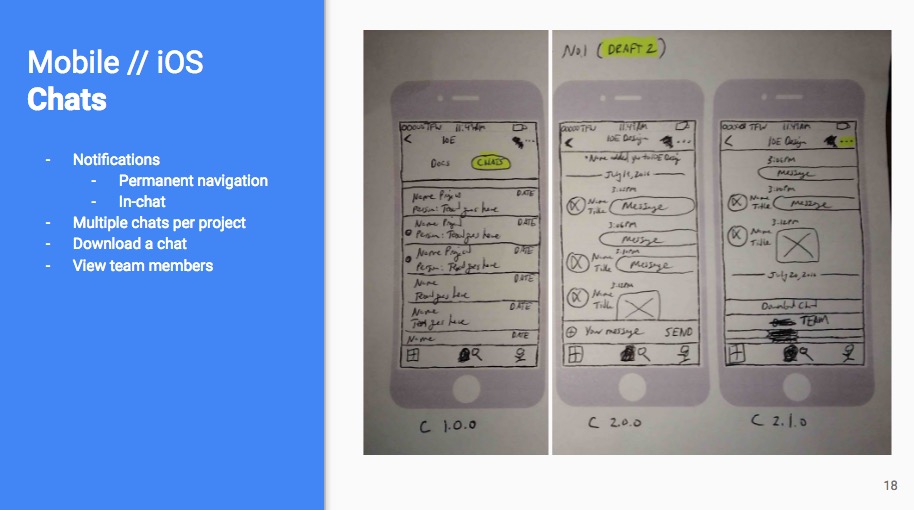 Mobile // iOS
Chats
- Notifications
- Permanent navigation
- In-chat
- Multiple chats per project
- Download a chat
- View team members
No.1 (DRAFT 2)
TFW 11:41AM
<
DOCS CHATS
Name Project DATE
Person: Text goes here
Name Project DATE
Person: Text goes here
Name Project DATE
Person: Text goes here
Name DATE
Text goes here
Name DATE
Text goes here
Name DATE
C 1.0.0
TFW 11:41AM
< IDE Design ...
Name added you to IDE Design
July 19, 2016
Message
Name
Title
3:06PM
Message
Name
Title
Message
3:12PM
Name
Title
Your message SEND
C 2.0.0
TFW 11:41AM
< IDE Design ...
3:06PM
Message
Name
Title
Message
3:12PM
Name
Title
July 20, 2016
Download Chat
TEAM
C 2.1.0
18